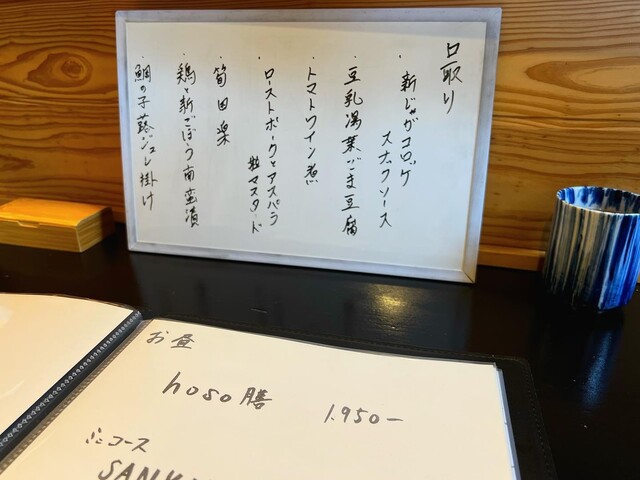 口取り
・新じゃがコロッケ
スナックソース
・豆乳湯葉ごま豆腐
・トマトワイン煮
・ローストポークとアスパラ
粒マスタード
・筍田楽
・鶏と新ごぼう南蛮漬
・鯛の子蕗ジュレ掛け
お昼
hoso膳 1.950-
ミニコース